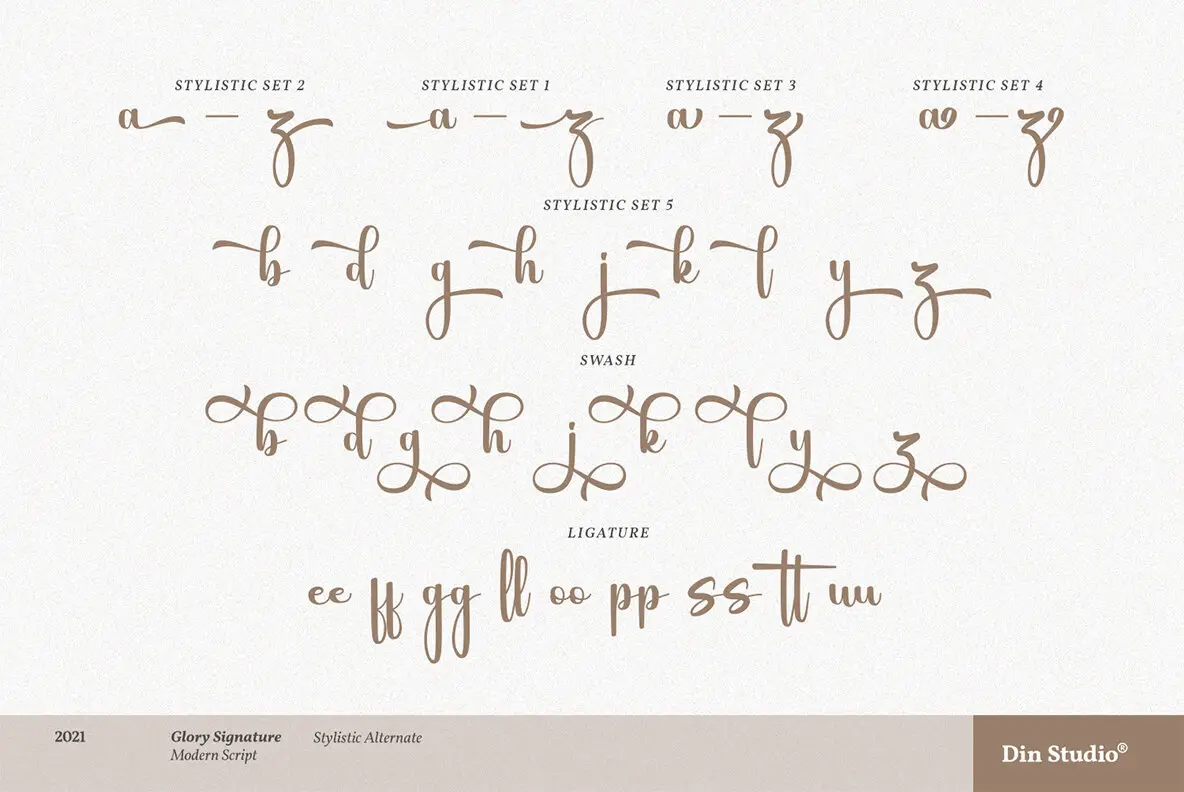 STYLISTIC SET 2 STYLISTIC SET 1 STYLISTIC SET 3 STYLISTIC SET 4
a — z a — z a — z a — z
STYLISTIC SET 5
b d g h j k l y z
SWASH
b d g h j k l y z
LIGATURE
ee ff gg ll oo pp ss tt uu
2021 Glory Signature Stylistic Alternate
Modern Script
Din Studio®